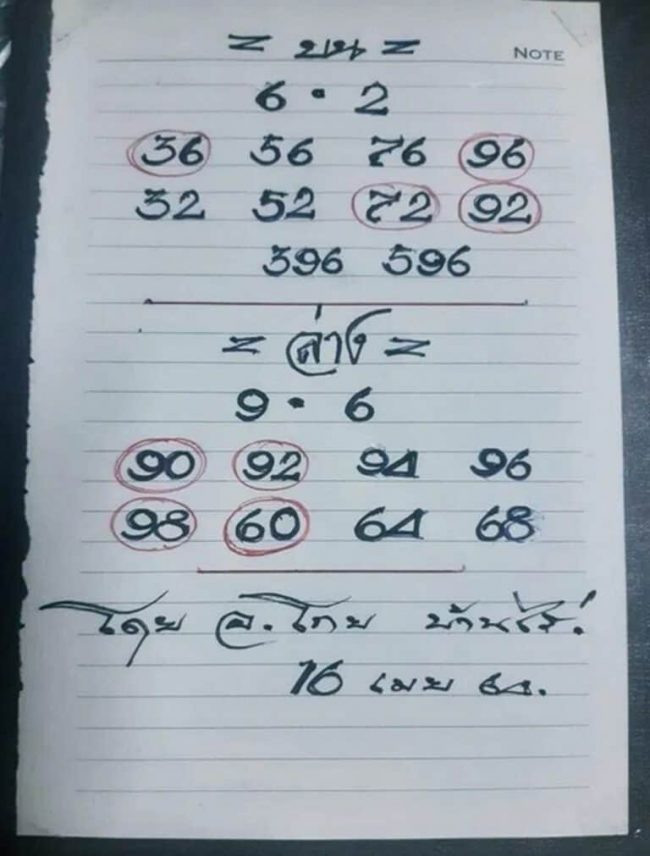 = บน =
NOTE
6 • 2
36 56 76 96
32 52 72 92
396 596
= ล่าง =
9 • 6
90 92 94 96
98 60 64 68
โดย อ.โภย บ้านไร่.
16 เมย 64.